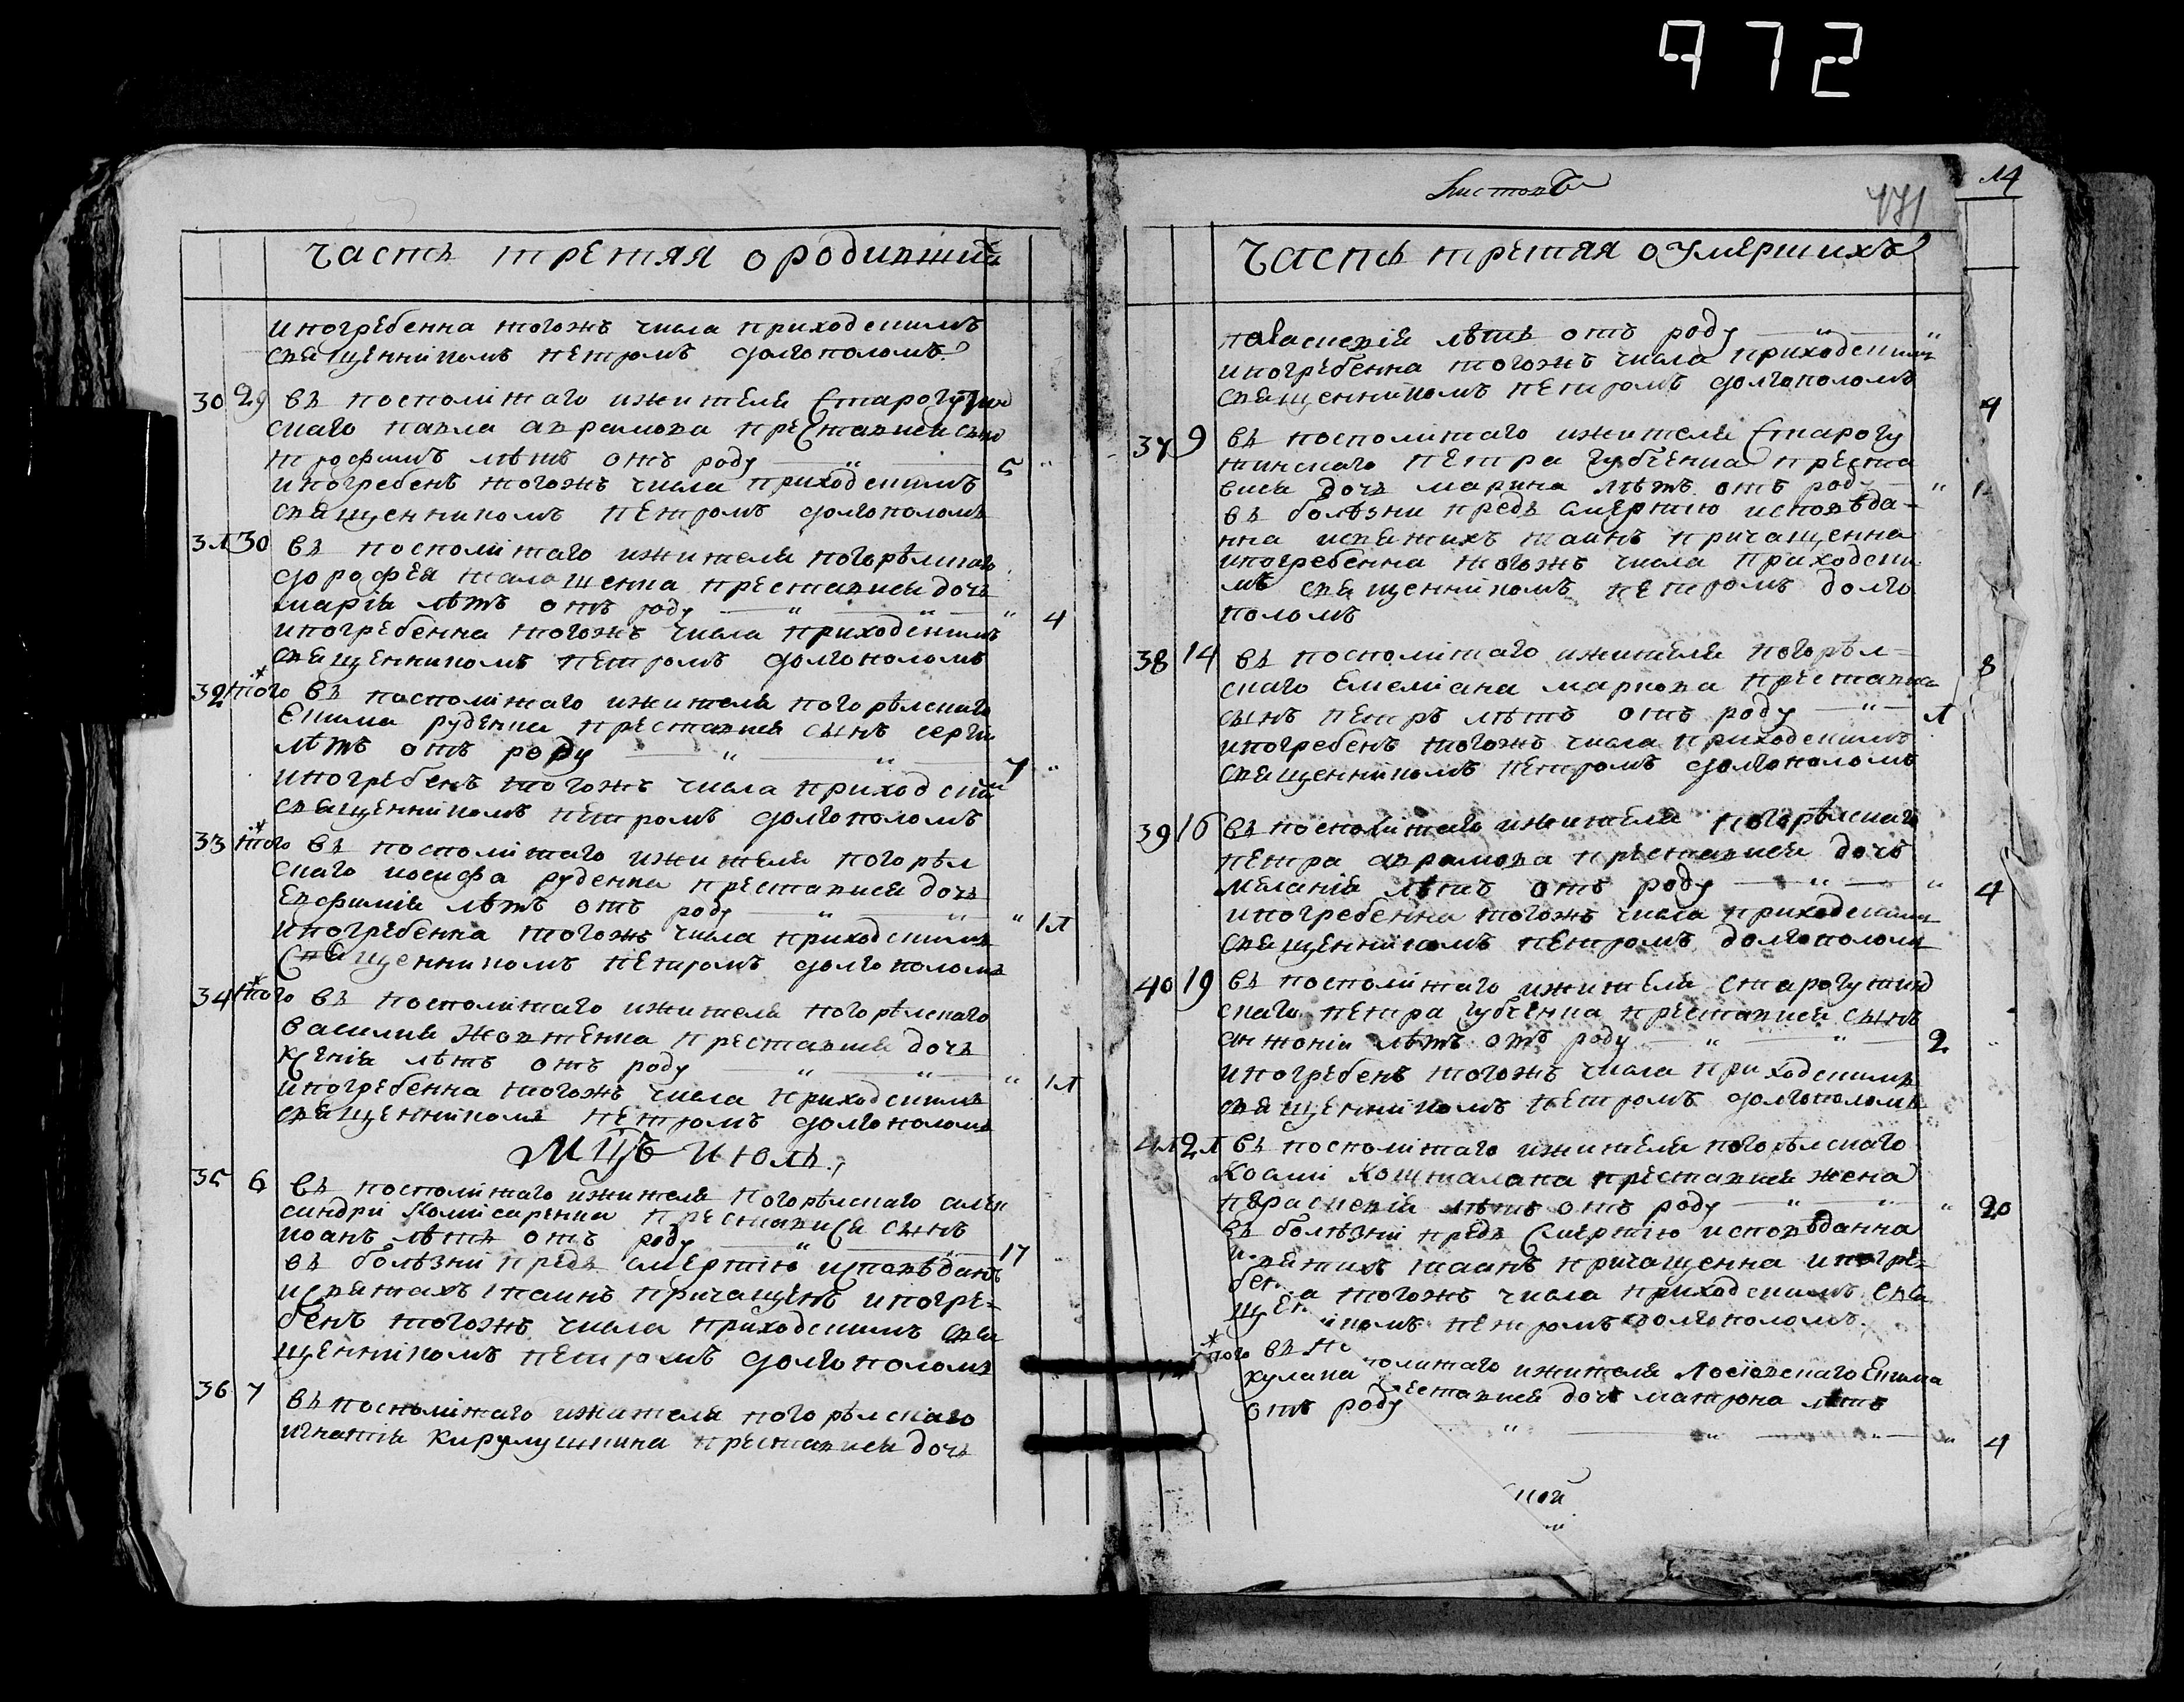 972
471
14
часть третяя о родивших
и погребенна тогожъ числа приходскимъ
священникомъ петромъ долгополомъ
30 29 въ посполитаго и жителя старогутин
скаго павла аврамова преставися сынъ
трофимъ лѣтъ отъ роду — " — 5 "
и погребенъ тогожъ числа приходскимъ
священникомъ петромъ долгополомъ
31 30 въ посполитаго и жителя погорѣлскаго
дорофея преставися дочь
марія лѣтъ отъ роду — " — " — " 4
и погребенна тогожъ числа приходскимъ
священникомъ петромъ долгополомъ
32 того въ посполитаго и жителя погорѣлскаго
Екима руденка преставися сынъ серги
лѣтъ отъ роду — " — " — 7 "
и погребенъ тогожъ числа приходским
священникомъ петромъ долгополомъ
33 того въ посполитаго и жителя погорѣл
скаго иосифа руденка преставися дочь
Евфимія лѣтъ отъ роду — " — " — " 11
и погребенна тогожъ числа приходскимъ
священникомъ петромъ долгополомъ
34 того въ посполитаго и жителя погорѣлскаго
василия жовтенка преставися дочь
Ксенія лѣтъ отъ роду — " — " — " 11
и погребенна тогожъ числа приходскимъ
священникомъ петромъ долгополомъ
мцъ июль
35 6 въ посполитаго и жителя погорѣлскаго алек
сандри комисаренка преставися сынъ
иоанъ лѣтъ отъ роду — " — 17 "
въ болѣзни предъ смертию исповѣданъ
и святахъ таинъ причащенъ и погре-
бенъ тогожъ числа приходскимъ свя
щенникомъ петромъ долгополомъ
36 7 въ посполитаго и жителя погорѣлскаго
игнатія преставися дочь
часть третяя о умершихъ
лѣтъ отъ роду — " — "
и погребенна тогожъ числа приходскимъ
священникомъ петромъ долгополомъ
4
37 9 въ посполитаго и жителя старогу
тинскаго петра губченка преста
вися дочь марина лѣтъ отъ роду — "
въ болѣзни предъ смертию исповѣда-
нна и святихъ таинъ причащенна
и погребенна тогожъ числа приходски
мъ священникомъ петромъ долго
поломъ
38 14 въ посполитаго и жителя погорѣл- 8
скаго Емелиана маркова преставися
сынъ петръ лѣтъ отъ роду — " — 1
и погребенъ тогожъ числа приходскимъ
священникомъ петромъ долгополомъ
39 16 въ посполитаго и жителя погорѣлскаго
петра аврамова преставися дочь
меланія лѣтъ отъ роду — " — " 4
и погребенна тогожъ числа приходским
священникомъ петромъ долгополом
40 19 въ посполитаго и жителя старогутин
скаго петра губченка преставися сынъ
антоніи лѣтъ отъ роду — " — " — 2 "
и погребенъ тогожъ числа приходскимъ
священникомъ петромъ долгополомъ
41 21 въ посполитаго и жителя погорѣлскаго
Косми преставися жена
параскевія лѣтъ отъ роду — " — " — " 20
въ болѣзни предъ смертию исповѣданна
и святихъ таинъ причащенна и погре-
бенна тогожъ числа приходскимъ свя
щенникомъ петромъ долгополомъ
того въ посполитаго и жителя Екима
кулака преставися дочь матрона лѣтъ
отъ роду — " — " — " — " 4